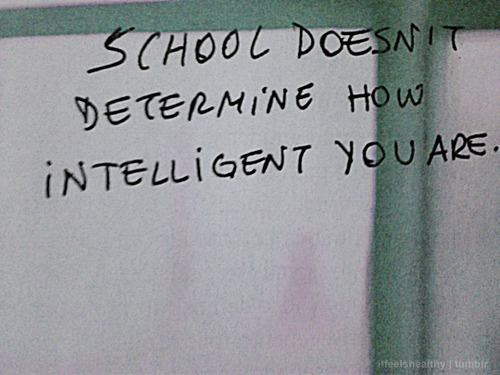 SCHOOL DOESN'T
DETERMINE HOW
iNTELLiGENT YOU ARE.
itfeelshealthy | tumblr